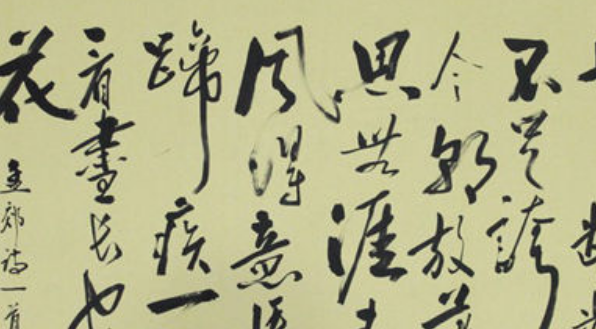 不足誇
今朝放
思無涯
風得意
蹄疾一
看盡長安
花
孟郊詩一首